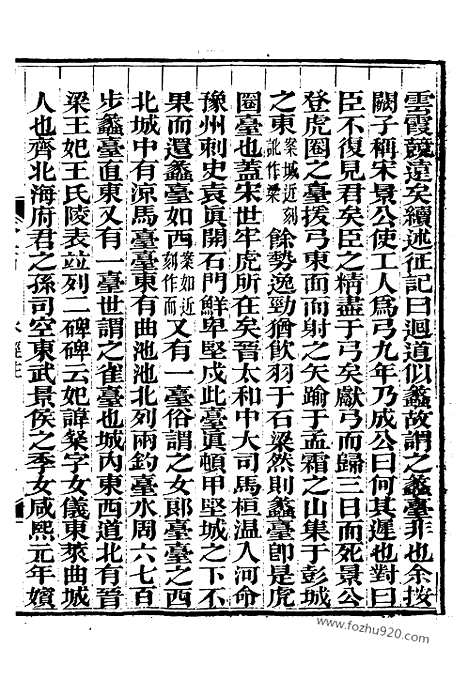 雲霞競遠矣續述征記曰迴道似蠡故謂之蠡臺非也余按
闕子稱宋景公使工人為弓九年乃成公曰何其遲也對曰
臣不復見君矣臣之精盡于弓矣獻弓而歸三日而死景公
登虎圈之臺援弓東面而射之矢踰于孟霜之山集于彭城
之東案城近刻訛作梁餘勢逸勁猶飲羽于石梁然則蠡臺即是虎
圈臺也蓋宋世牢虎所在矣晉太和中大司馬桓溫入河命
豫州刺史袁眞開石門鮮卑堅戍此臺眞頓甲堅城之下不
果而還蠡臺如西案如近刻作而又有一臺俗謂之女郎臺臺之西
北城中有涼馬臺臺東有曲池池北列兩釣臺水周六七百
步蠡臺直東又有一臺世謂之雀臺也城內東西道北有晉
梁王妃王氏陵表竝列二碑碑云妃諱粲字女儀東萊曲城
人也齊北海府君之孫司空東武景侯之季女咸熙元年嬪
水經注
www.fozhu920.com